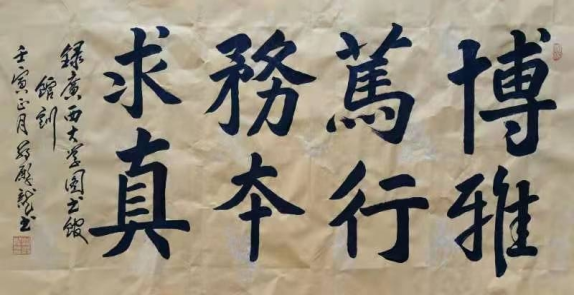 博雅
篤行
務本
求真
錄廣西大学图书館
館訓
壬寅正月 书